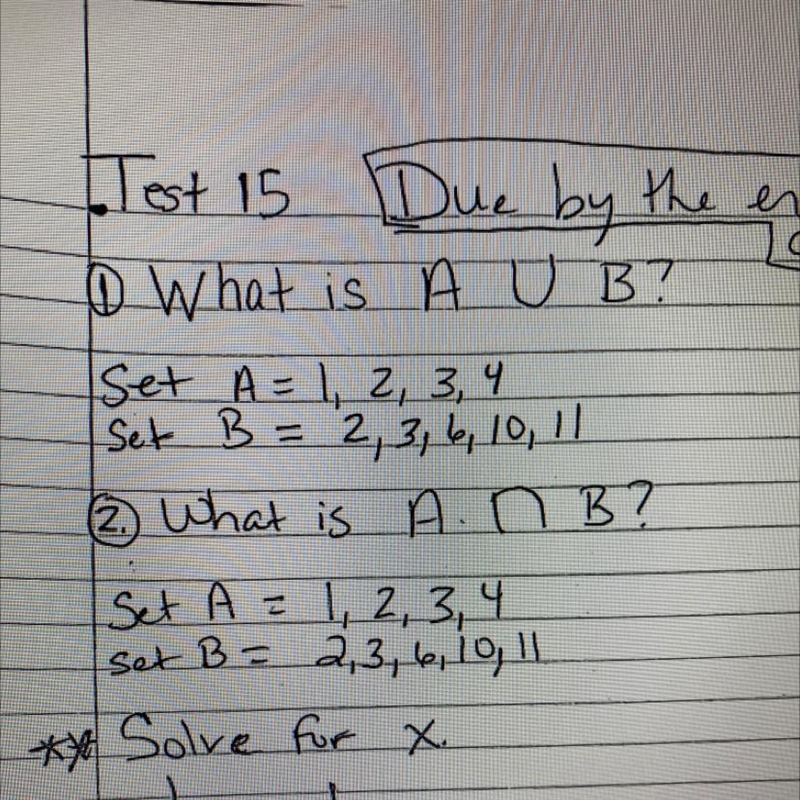 Test 15 Due by the
① What is A ∪ B?
Set A = 1, 2, 3, 4
Set B = 2, 3, 6, 10, 11
②. What is A. ∩ B?
Set A = 1, 2, 3, 4
Set B = 2, 3, 6, 10, 11
** Solve for x.